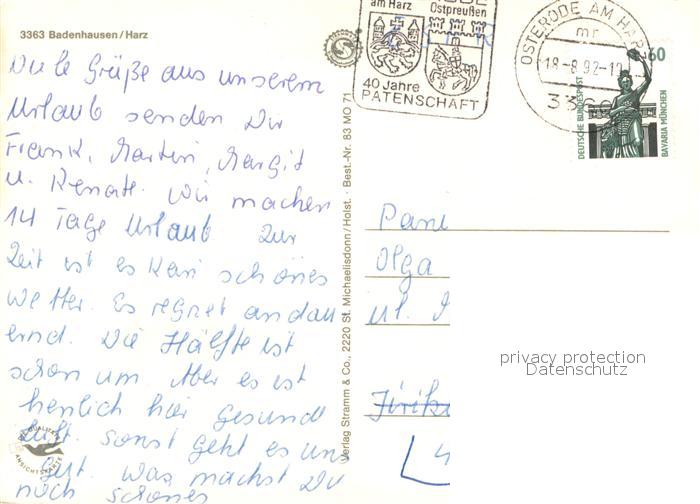 3363 Badenhausen/Harz
Viele Grüße aus unserem
Urlaub senden Dir
Frank, Martin, Margit
u. Renate. Wir machen
14 Tage Urlaub Zur
Zeit ist es kein schönes
Wetter. Es regnet andau
ernd. Die Hälfte ist
schon um Aber es ist
herrlich hier Gesund
luft. Sonst geht es uns
gut. Was machst Du
noch schönes
DIE QUALITÄTS
ANSICHTSKARTE
Verlag Stramm & Co., 2220 St. Michaelisdonn/Holst. · Best.-Nr. 83 MO 71
am Harz Ostpreußen
40 Jahre
PATENSCHAFT
OSTERODE AM HARZ
mr
18-8.92-1
336
60
DEUTSCHE BUNDESPOST
BAVARIA MÜNCHEN
Pani
Olga
ul.
privacy protection
Datenschutz